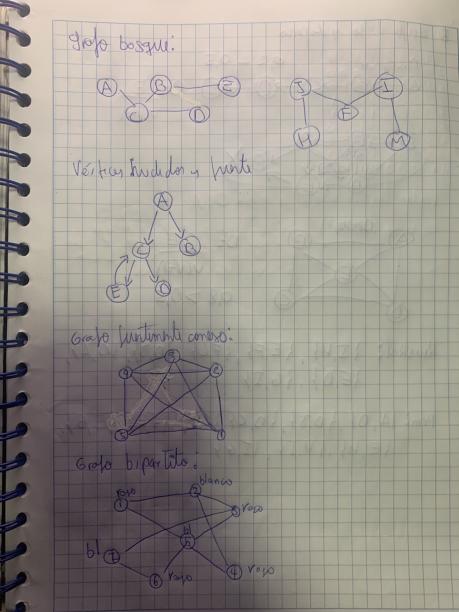 Grafo bosque:
A B E J I
C D F
H M
Vértices hundidos y fuente
A
C B
E D
Grafo fuertemente conexo:
3
4
5 1
Grafo bipartito:
rojo blanco
1 2
3 rojo
bl
bl 7 5
6 rojo 4 rojo